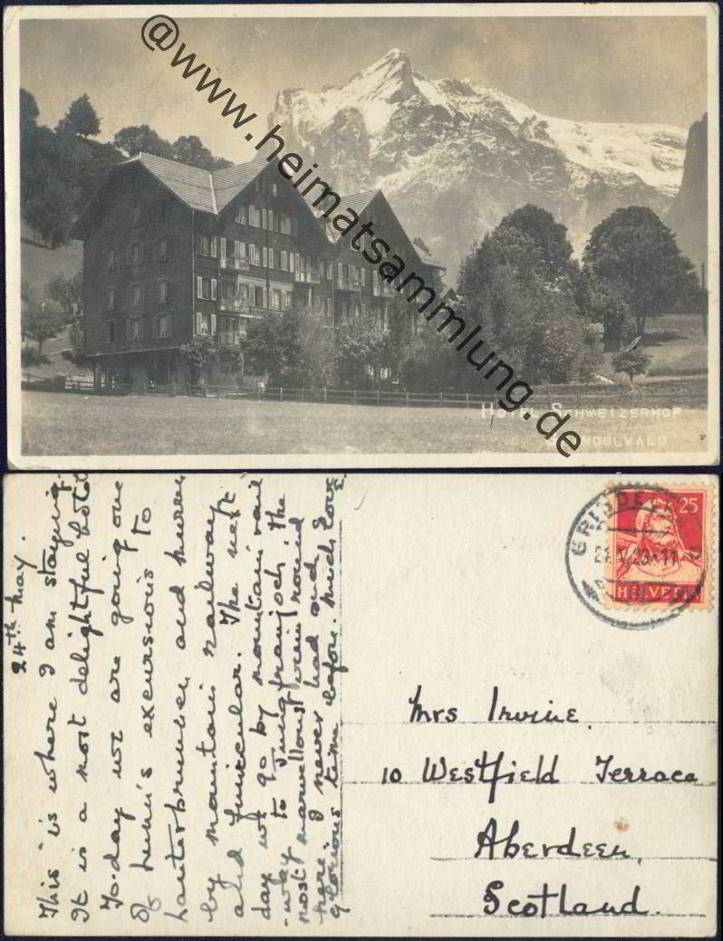 @www.heimatsammlung.de
HOTEL SCHWEIZERHOF
GRINDELWALD
24th May.
This is where I am staying.
It is a most delightful hotel
To-day we are going one
of Lunn's excursions to
Lauterbrunnen and Murren
by mountain railway
and funicular. The next
day we go by mountain rail
-way to Jungfraujoch the
most marvellous train round
here. I never had such a
glorious time before. much love
E.
25
HELVETIA
Mrs Irvine.
10 Westfield Terrace
Aberdeen,
Scotland.